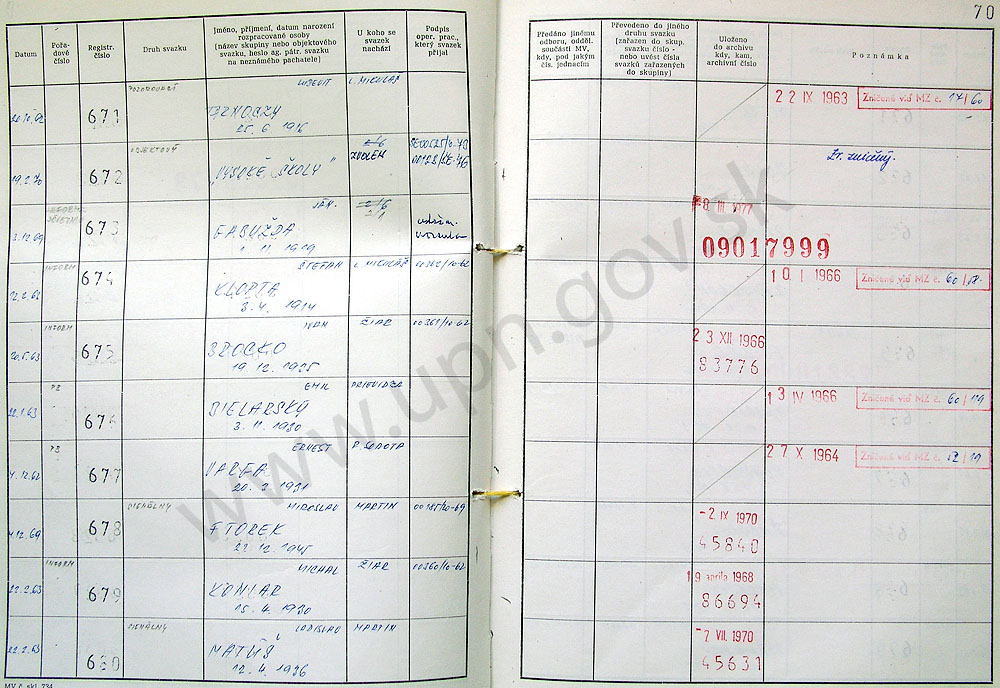 70
Datum
Pořa-
dové
číslo
Registr.
číslo
Druh svazku
Jméno, příjmení, datum narození
rozpracované osoby
(název skupiny nebo objektového
svazku, heslo ag. pátr. svazku
na neznámého pachatele)
U koho se
svazek
nachází
Podpis
oper. prac.,
který svazek
přijal
Předáno jinému
odboru, odděl.
součásti MV,
kdy, pod jakým
čís. jednacím
Převedeno do jiného
druhu svazku
(zařazen do skup.
svazku číslo -
nebo uvést čísla
svazků zařazených
do skupiny)
Uloženo
do archivu
kdy, kam,
archivní číslo
Poznámka
671
25. 6. 1916
L. MIKULÁŠ
22 IX 1963
Zničené viď MZ č. 17/60
19.2.70
OBJEKTOVÝ
672
"VYSOKÉ ŠKOLY"
ZVOLEN
3.12.69
673
JÁN
8 III 1977
09017999
12.2.62
INFORM
674
ŠTEFAN
3. 4. 1914
L. MIKULÁŠ
00362/10-62
10 I 1966
Zničené viď MZ č. 60/18.
20.5.63
INFORM
675
IVAN
BROCKO
19. 12. 1925
ŽIAR
00368/10-62
23 XII 1966
83776
22.1.63
PB
676
EMIL
BIELARSKÝ
3. 11. 1930
PRIEVIDZA
13 IV 1966
Zničené viď MZ č. 60/19
4.12.62
PB
677
ERNEST
VARGA
20. 3. 1931
R. SOBOTA
27 X 1964
Zničené viď MZ č. 12/19
4.12.69
SIGNÁLNY
678
MIROSLAV
FTOREK
MARTIN
00185/10-69
- 2 IX 1970
45840
22.2.63
INFORM
679
MICHAL
15. 4. 1930
ŽIAR
00360/10-62
19 apríla 1968
86694
22.2.63
SIGNÁLNY
680
LADISLAV
MATÚŠ
12. 4. 1936
MARTIN
- 7 VII. 1970
45631
MV č. skl. 734
www.upn.gov.sk